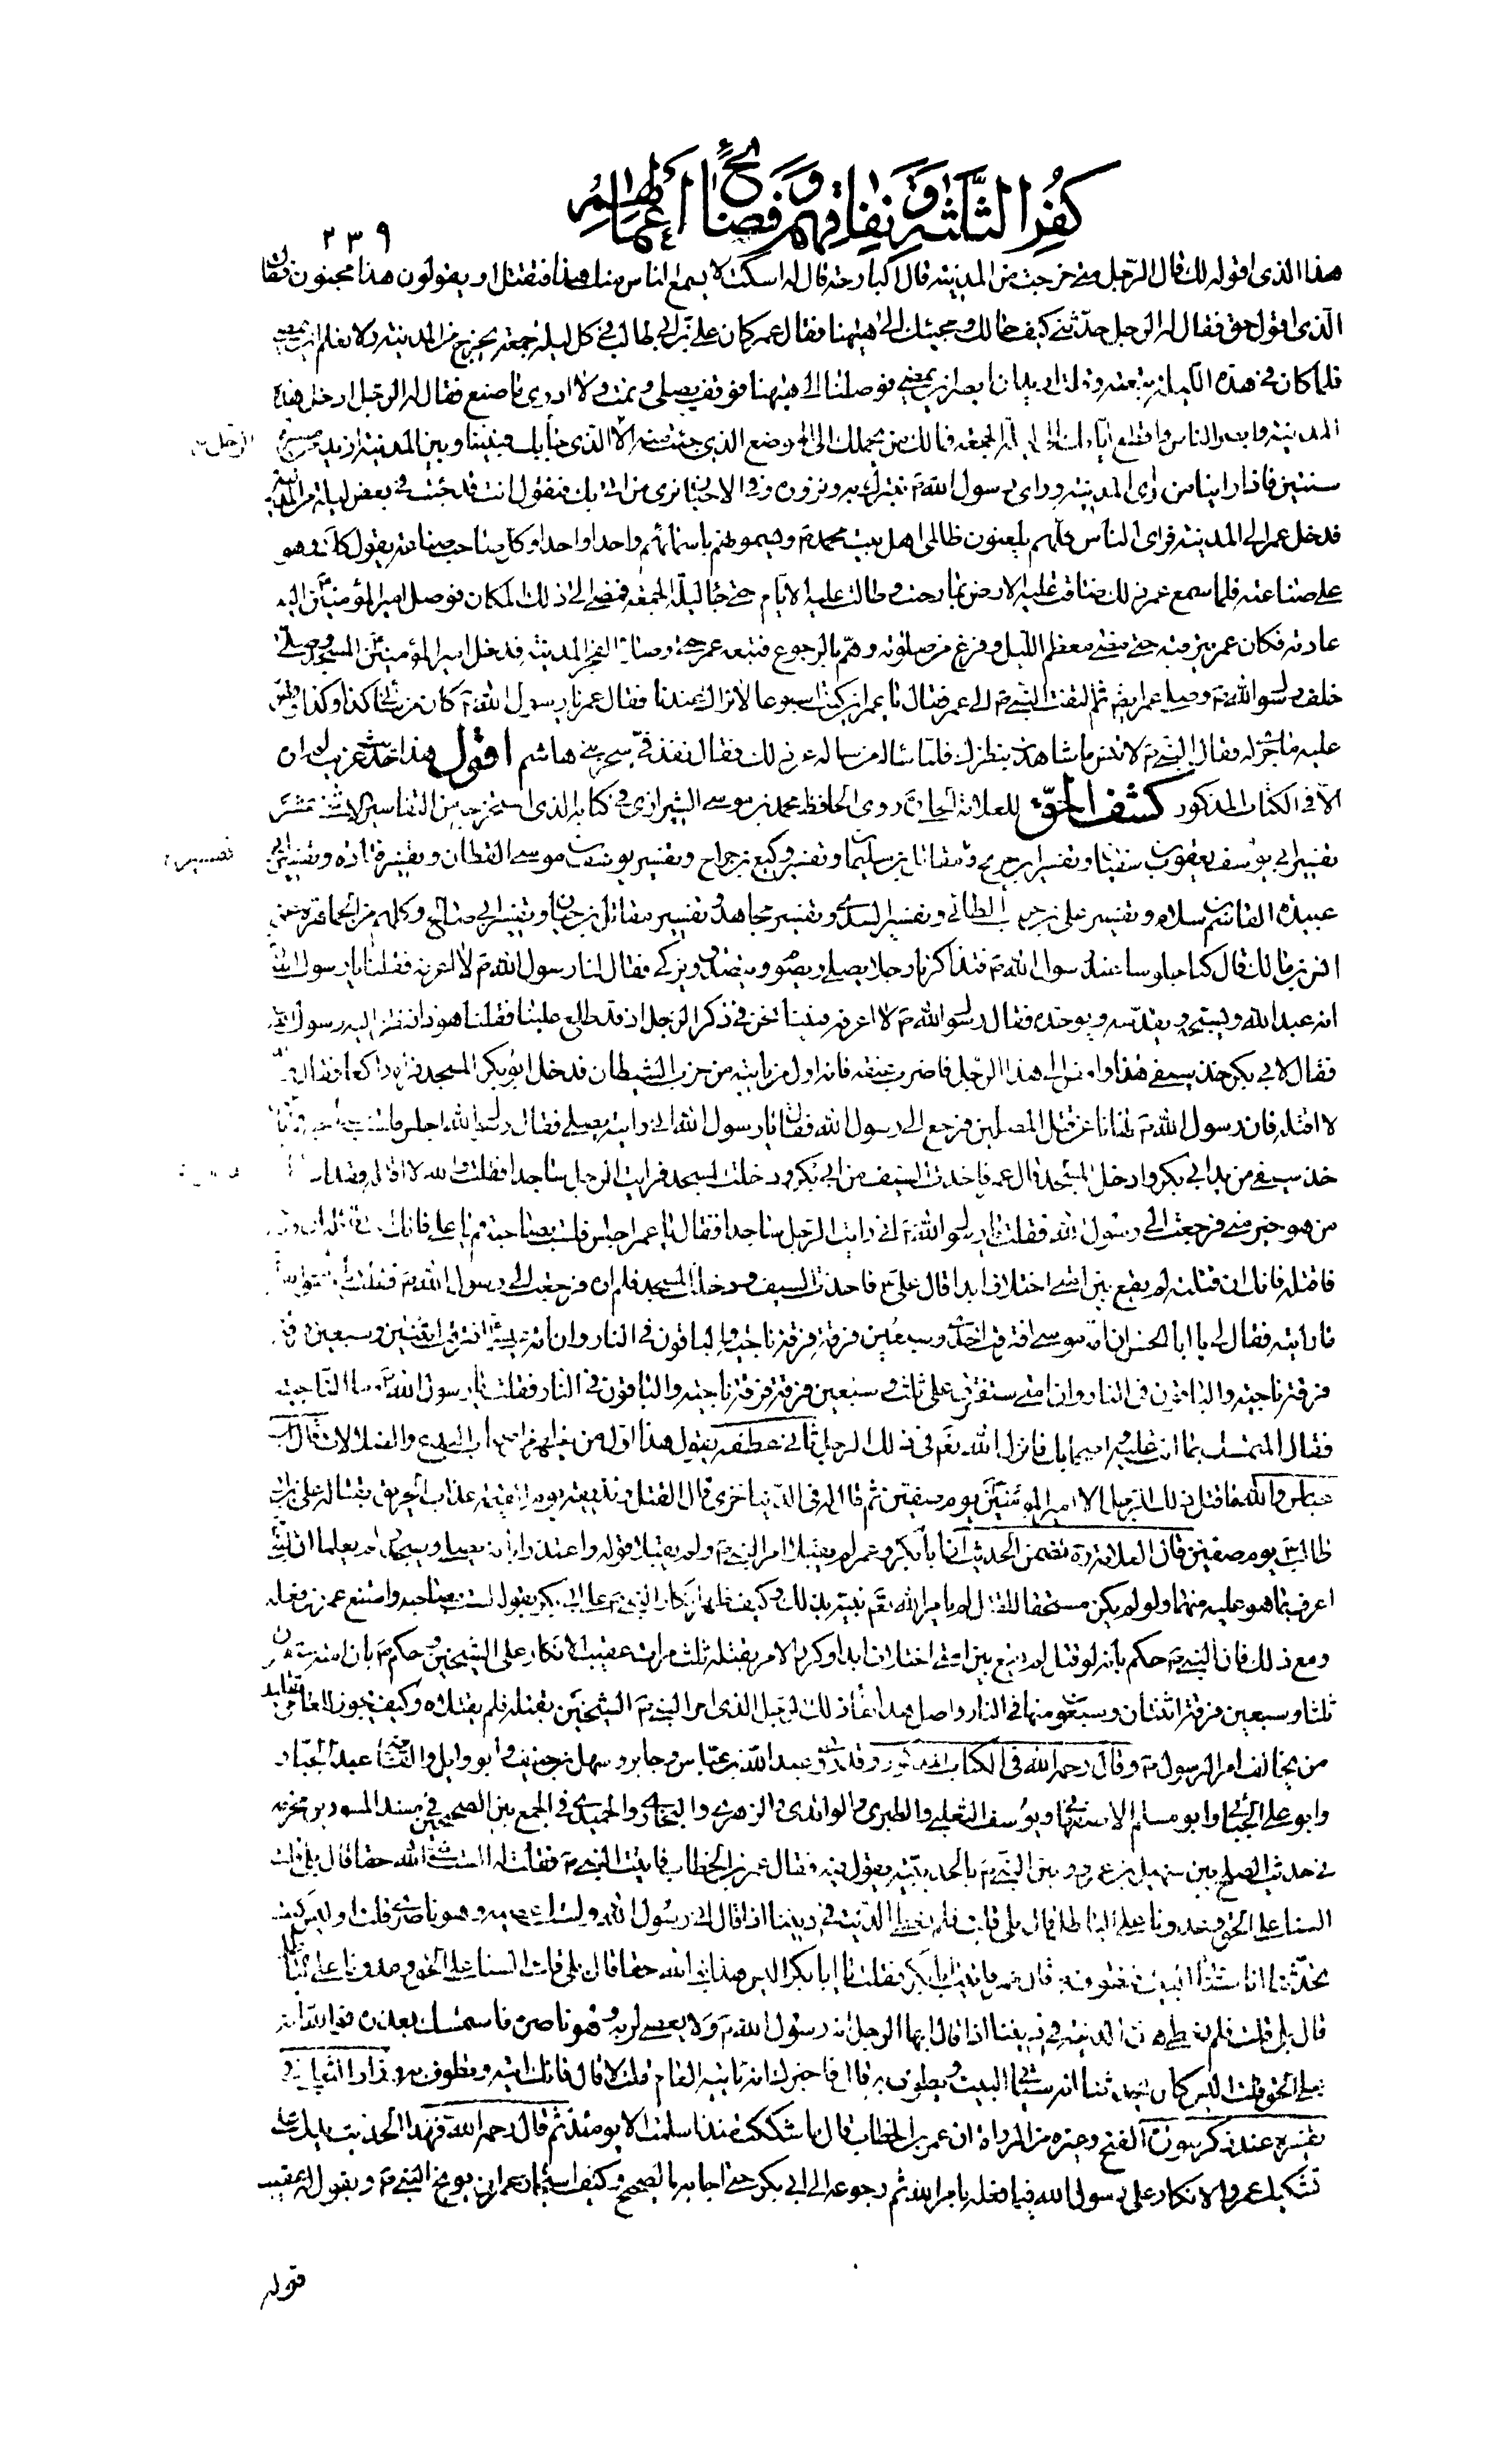 كفر الثلثة ونفاقهم وفضائح أعمالهم
٢٣٩
هذا الذى اقوله لك قال الرجل متى خرجت من المدينة قال البارحة قال له اسكت لا يسمع الناس منك هذا فتقتل او يقولون هذا مجنون فقال
الذى اقول حق فقال له الرجل حدثنى كيف حالك ومجيئك الى هيهنا فقال عمر كان على بن ابى طالب فى كل ليلة جمعة يخرج من المدينة ولا نعلم اين يمضى
فلما كان فى هذه الليلة تبعته وقلت اريد ان ابصر اين يمضى فوصلنا الى هيهنا فوقف يصلى ونمت ولا ادرى ما صنع فقال له الرجل ادخل هذه
المدينة وابصر الناس واقطع ايامك الى ليلة الجمعة فمالك من يحملك الى الموضع الذى جئت منه الا الذى جاء بك فبيننا وبين المدينة ازيد من مسيرة
الرجل
سنتين فاذا راينا من راى المدينة وراى رسول الله ص نتبرك به ونزوره وفى الاحيان نرى من اتى بك فنقول انت قد جئت فى بعض ليلة من المدينة
فدخل عمر الى المدينة فراى الناس كلهم يلعنون ظالمى اهل بيت محمد ص ويسمونهم باسمائهم واحدا واحدا وكل صاحب صناعة يقول كذلك وهو
على صناعته فلما سمع عمر ذلك ضاقت عليه الارض بما رحبت وطالت عليه الايام حتى جاء ليلة الجمعة فمضى الى ذلك المكان فوصل امير المؤمنين اليه
عادته فكان عمر يترقبه حتى مضى معظم الليل وفرغ من صلوته وهم بالرجوع فتبعه عمر حتى وصلا الفجر المدينة فدخل امير المؤمنين المسجد وصلى
خلف رسول الله ص وصلى عمر ايضا ثم التفت النبى ص الى عمر فقال يا عمر اين كنت اسبوعا لا نراك عندنا فقال عمر يا رسول الله ص كان من شانى كذا وكذا وقص
عليه ما جرى له فقال النبى ص لا تنس ما شاهدت بنظرك فلما سأله من سأله عن ذلك فقال نفذ فى سحر بنى هاشم اقول هذا حديث غريب لم اره
الا فى الكتاب المذكور كشف الحق للعلامة الحلى ره روى الحافظ محمد بن موسى الشيرازى فى كتابه الذى استخرجه من التفاسير الاثنى عشر
تفسير ابى يوسف يعقوب بن سفيان وتفسير ابن جريح ومقاتل بن سليمان وتفسير وكيع بن جراح وتفسير يوسف بن موسى القطان وتفسير قتادة وتفسير ابى
تفسير
عبيدة القاسم بن سلام وتفسير على بن حرب الطائى وتفسير السدى وتفسير مجاهد وتفسير مقاتل بن حيان وتفسير ابى صالح وكلهم من الجماهرة عن
انس بن مالك قال كنا جلوسا عند رسول الله ص فتذاكرنا رجلا يصلى ويصوم ويتصدق ويزكى فقال لنا رسول الله ص لا اعرفه فقلنا يا رسول الله
انه عبد الله ويسبحه ويقدسه ويوحده فقال رسول الله ص لا اعرفه فبينا نحن فى ذكر الرجل اذ قد طلع علينا فقلنا هو ذا فنظر اليه رسول الله
فقال لابى بكر خذ سيفى هذا وامض الى هذا الرجل فاضرب عنقه فانه اول من ياتيه من حزب الشيطان فدخل ابو بكر المسجد فراه راكعا فقال
لا اقتله فان رسول الله ص نهانا عن قتل المصلين فرجع الى رسول الله فقال يا رسول الله انى رايته يصلى فقال رسول الله اجلس فلست بصاحبه
خذ سيفى من يد ابى بكر وادخل المسجد قال عمر فاخذت السيف من ابى بكر ودخلت المسجد فرايت الرجل ساجدا فقلت والله لا اقتله فقد
من هو خير منى فرجعت الى رسول الله فقلت يا رسول الله ص انى رايت الرجل ساجدا فقال يا عمر اجلس فلست بصاحبه قم يا على فانك
فاقتله فانك ان قتلته لم يقع بين امتى اختلاف ابدا قال على ع فاخذت السيف ودخلت المسجد فلم اره فرجعت الى رسول الله ص فقلت
ما رايته فقال لى يا ابا الحسن ان امة موسى افترقت احدى وسبعين فرقة فرقة ناجية والباقون فى النار وان امة عيسى افترقت اثنتين وسبعين فرقة
فرقة ناجية والباقون فى النار وان امتى ستفترق على ثلث وسبعين فرقة فرقة ناجية والباقون فى النار فقلت يا رسول الله ص ما الناجية
فقال المتمسك بما انت عليه واصحابك فانزل الله تعم فى ذلك الرجل ثانى عطفه يقول هذا اول من يظهر من اصحاب البدع والضلالات قال ابن
عباس والله ما قتل ذلك الرجل الا امير المؤمنين يوم صفين ثم قال له فى الدنيا خزى قال القتل ونذيقه يوم القيمة عذاب الحريق بقتاله على بن ابى
طالب ع يوم صفين قال العلامة ره تضمن الحديث ان ابا بكر وعمر لم يقبلا امر النبى ص ولم يقبلا قوله واعتذرا بانه يصلى ويسجد ولم يعلما ان النبى
اعرف بما هو عليه منهما ولو لم يكن مستحقا للقتل لم يامر الله تعم نبيه بذلك وكيف ظهر انكار النبى ص على ابى بكر بقوله لست بصاحبه وامتنع عمر من قتله
ومع ذلك فان النبى ص حكم بانه لو قتل لم يقع بين امتى اختلاف ابدا وكرر الامر بقتله ثلث مرات عقيب الانكار على الشيخين وحكم ص بان امته ستفترق
ثلثا وسبعين فرقة اثنتان وسبعون منها فى النار واصل هذا بقاء ذلك الرجل الذى امر النبى ص الشيخين بقتله فلم يقتلاه وكيف يجوز للعامى تقليد
من يخالف امر الرسول ص وقال رحمه الله فى الكتاب المذكور وقد روى عبد الله بن عباس وجابر وسهل بن حنيف وابو وايل والقاضى عبد الجبار
وابو على الجبائى وابو مسلم الاصفهانى ويوسف الثعلبى والطبرى والواقدى والزهرى والبخارى والحميدى فى الجمع بين الصحيحين فى مسند المسور بن مخرمه
فى حديث الصلح بين سهيل بن عمرو وبين النبى ص بالحديبية يقول فيه فقال عمر بن الخطاب فاتيت النبى ص فقلت له الست نبى الله حقا قال بلى قلت
السنا على الحق وعدونا على الباطل قال بلى قلت فلم نعطى الدنية فى ديننا اذا قال انى رسول الله ولست اعصيه وهو ناصرى قلت اوليس كنت
تحدثنا انا سناتى البيت ونطوف به قال عمر فاتيت ابا بكر فقلت يا ابا بكر اليس هذا نبى الله حقا قال بلى قلت السنا على الحق وعدونا على الباطل
قال بلى قلت فلم نعطى هذه الدنية فى ديننا اذا قال ايها الرجل انه رسول الله ص ولا يعصى لربه وهو ناصره فاستمسك بعذره فوالله انه
على الحق قلت اليس كان يحدثنا انه سياتى البيت ويطوف به قال فاخبرك انه ياتيه العام قلت لا قال فانك اتيه وتطوف به وزاد الثعلبى فى
تفسيره عند ذكر سورة الفتح وغيره من الرواة ان عمر بن الخطاب قال ما شككت منذ اسلمت الا يومئذ ثم قال رحمه الله فهذا الحديث يدل على
تشكيك عمر والانكار على رسول الله فيما فعله بامر الله ثم رجوعه الى ابى بكر حتى اجابه بالصحيح وكيف استجاز عمر ان يوبخ النبى ص ويقول له عقيب
قوله